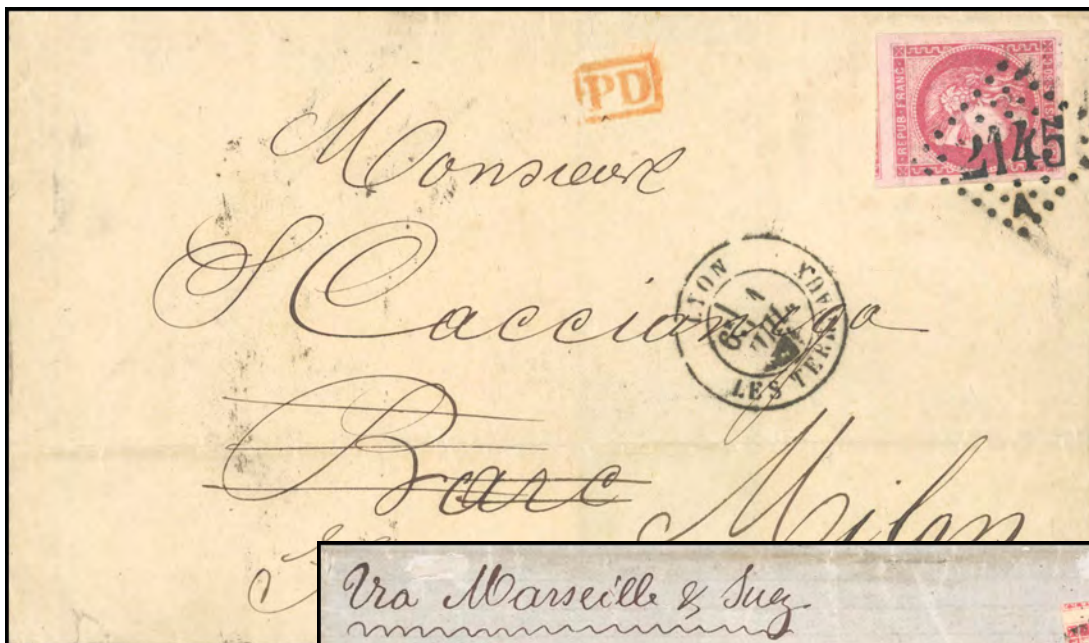 PD
REPUB · FRANC ·
2145
A
Monsieur
S Caccianiga
LYON
6E / 1
JUIL.
LES TERREAUX
Barc
Milan
Via Marseille & Suez